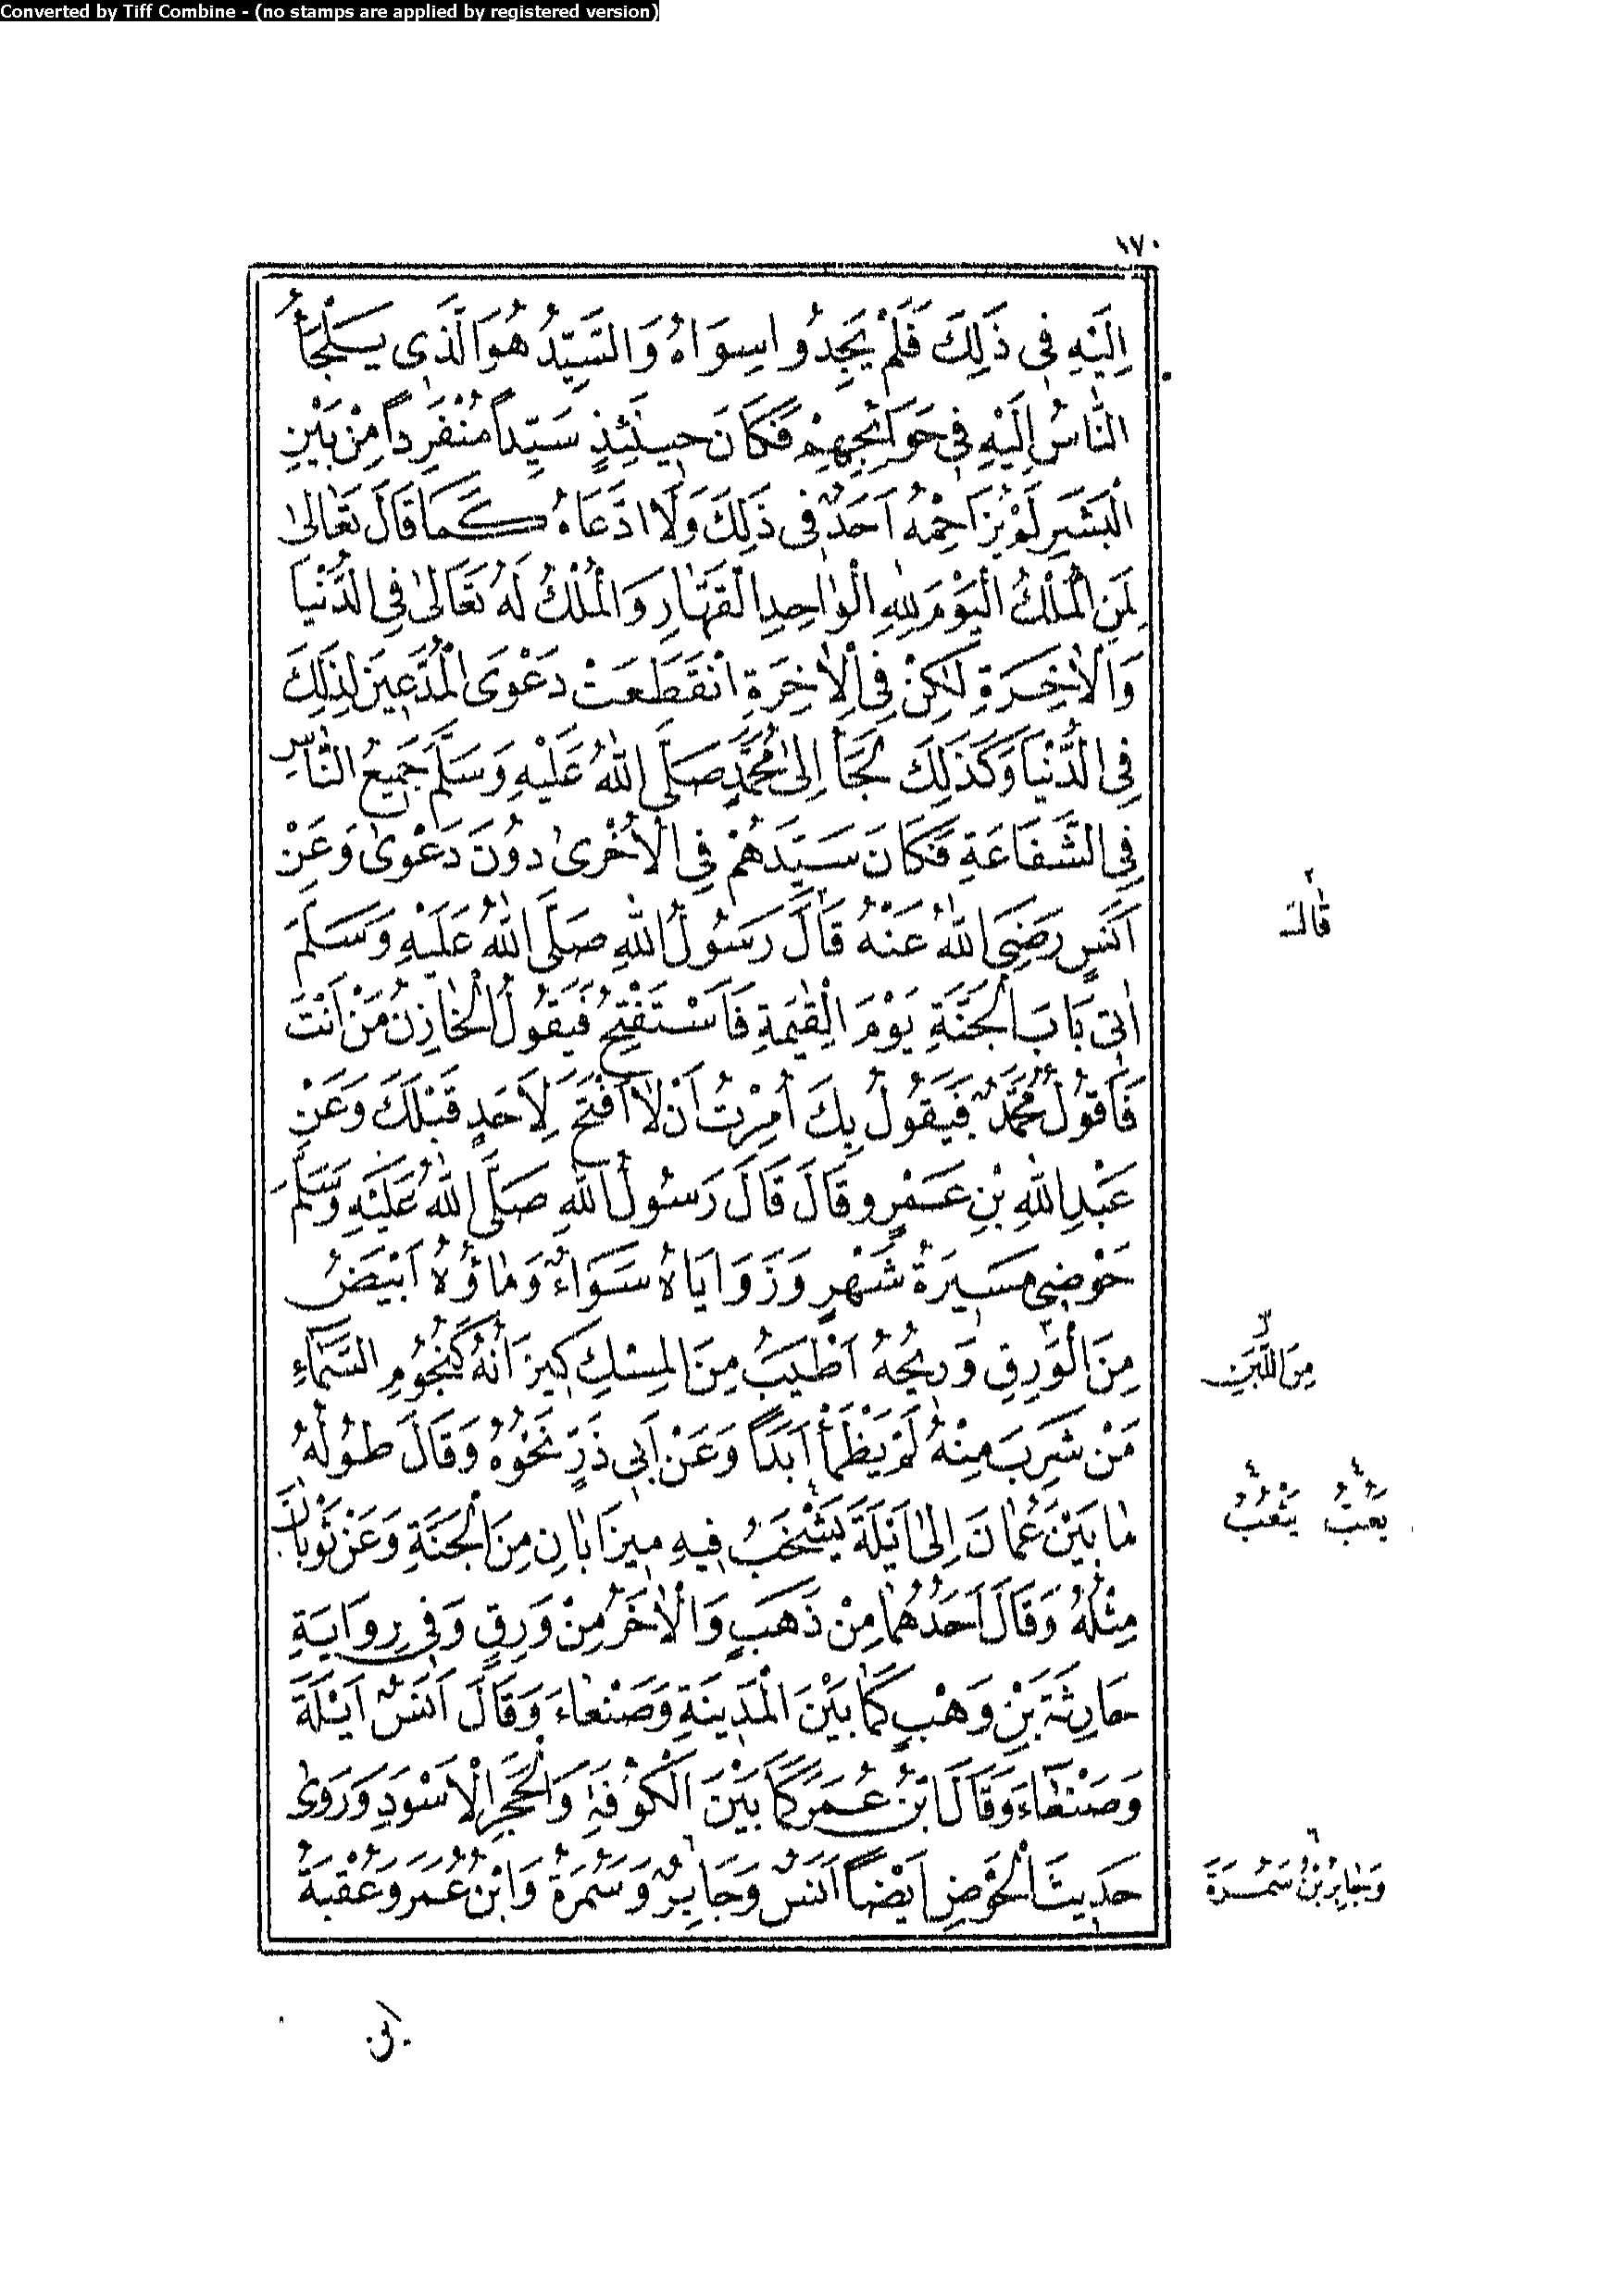 Converted by Tiff Combine - (no stamps are applied by registered version)
١٧٠
اِلَيْهِ فِى ذٰلِكَ فَلَمْ يَجِدُوا سِوَاهُ وَالسَّيِّدُ هُوَ الَّذِى يَلْجَأُ
النَّاسُ اِلَيْهِ فِى حَوَائِجِهِمْ فَكَانَ حِينَئِذٍ سَيِّداً مُنْفَرِداً مِنْ بَيْنِ
الْبَشَرِ لَمْ يُزَاحِمْهُ اَحَدٌ فِى ذٰلِكَ وَلَا ادَّعَاهُ كَمَا قَالَ تَعَالىٰ
لِمَنِ الْمُلْكُ الْيَوْمَ لِلّٰهِ الْوٰاحِدِ الْقَهَّارِ وَالْمُلْكُ لَهُ تَعَالىٰ فِى الدُّنْيَا
وَالْاٰخِرَةِ لٰكِنْ فِى الْاٰخِرَةِ انْقَطَعَتْ دَعْوَى الْمُدَّعِينَ لِذٰلِكَ
فِى الدُّنْيَا وَكَذٰلِكَ لَجَأَ اِلىٰ مُحَمَّدٍ صَلَّى اللهُ عَلَيْهِ وَسَلَّمَ جَمِيعُ النَّاسِ
فِى الشَّفَاعَةِ فَكَانَ سَيِّدَهُمْ فِى الْاُخْرىٰ دُونَ دَعْوىٰ وَعَنْ
اَنَسٍ رَضِىَ اللهُ عَنْهُ قَالَ رَسُولُ اللهِ صَلَّى اللهُ عَلَيْهِ وَسَلَّمَ
٢
قٰالَ
اٰتِى بَابَ الْجَنَّةِ يَوْمَ الْقِيٰمَةِ فَاَسْتَفْتِحُ فَيَقُولُ الْخَازِنُ مَنْ اَنْتَ
فَاَقُولُ مُحَمَّدٌ فَيَقُولُ بِكَ اُمِرْتُ اَنْ لَا اَفْتَحَ لِاَحَدٍ قَبْلَكَ وَعَنْ
عَبْدِ اللهِ بْنِ عَمْرٍو قَالَ قَالَ رَسُولُ اللهِ صَلَّى اللهُ عَلَيْهِ وَسَلَّمَ
حَوْضِى مَسِيرَةُ شَهْرٍ وَزَوَايَاهُ سَوَاءٌ وَمٰاؤُهُ اَبْيَضُ
مِنَ الْوَرِقِ وَرِيحُهُ اَطْيَبُ مِنَ الْمِسْكِ كِيزَانُهُ كَنُجُومِ السَّمَاءِ
٣
مِنَ اللَّبَنِ
مَنْ شَرِبَ مِنْهُ لَمْ يَظْمَأْ اَبَداً وَعَنْ اَبِى ذَرٍّ نَحْوُهُ وَقَالَ طُولُهُ
مٰا بَيْنَ عُمٰانَ اِلىٰ اَيْلَةَ يَشْخَبُ فِيهِ مِيزَابَانِ مِنَ الْجَنَّةِ وَعَنْ ثَوْبَانَ
٤ ٤
يَعُبُّ يَثْعُبُ
مِثْلُهُ وَقَالَ اَحَدُهُمَا مِنْ ذَهَبٍ وَالْاٰخَرُ مِنْ وَرِقٍ وَفِى رِوَايَةِ
حَارِثَةَ بْنِ وَهْبٍ كَمَا بَيْنَ الْمَدِينَةِ وَصَنْعَاءَ وَقَالَ اَنَسٌ اَيْلَةَ
وَصَنْعَاءَ وَقَالَ ابْنُ عُمَرَ كَمَا بَيْنَ الْكُوفَةِ وَالْحَجَرِ الْاَسْوَدِ وَرَوىٰ
حَدِيثَ الْحَوْضِ اَيْضاً اَنَسٌ وَجَابِرٌ وَسَمُرَةُ وَابْنُ عُمَرَ وَعُقْبَةُ
٦
وَجَابِرُ بْنُ سَمُرَةَ